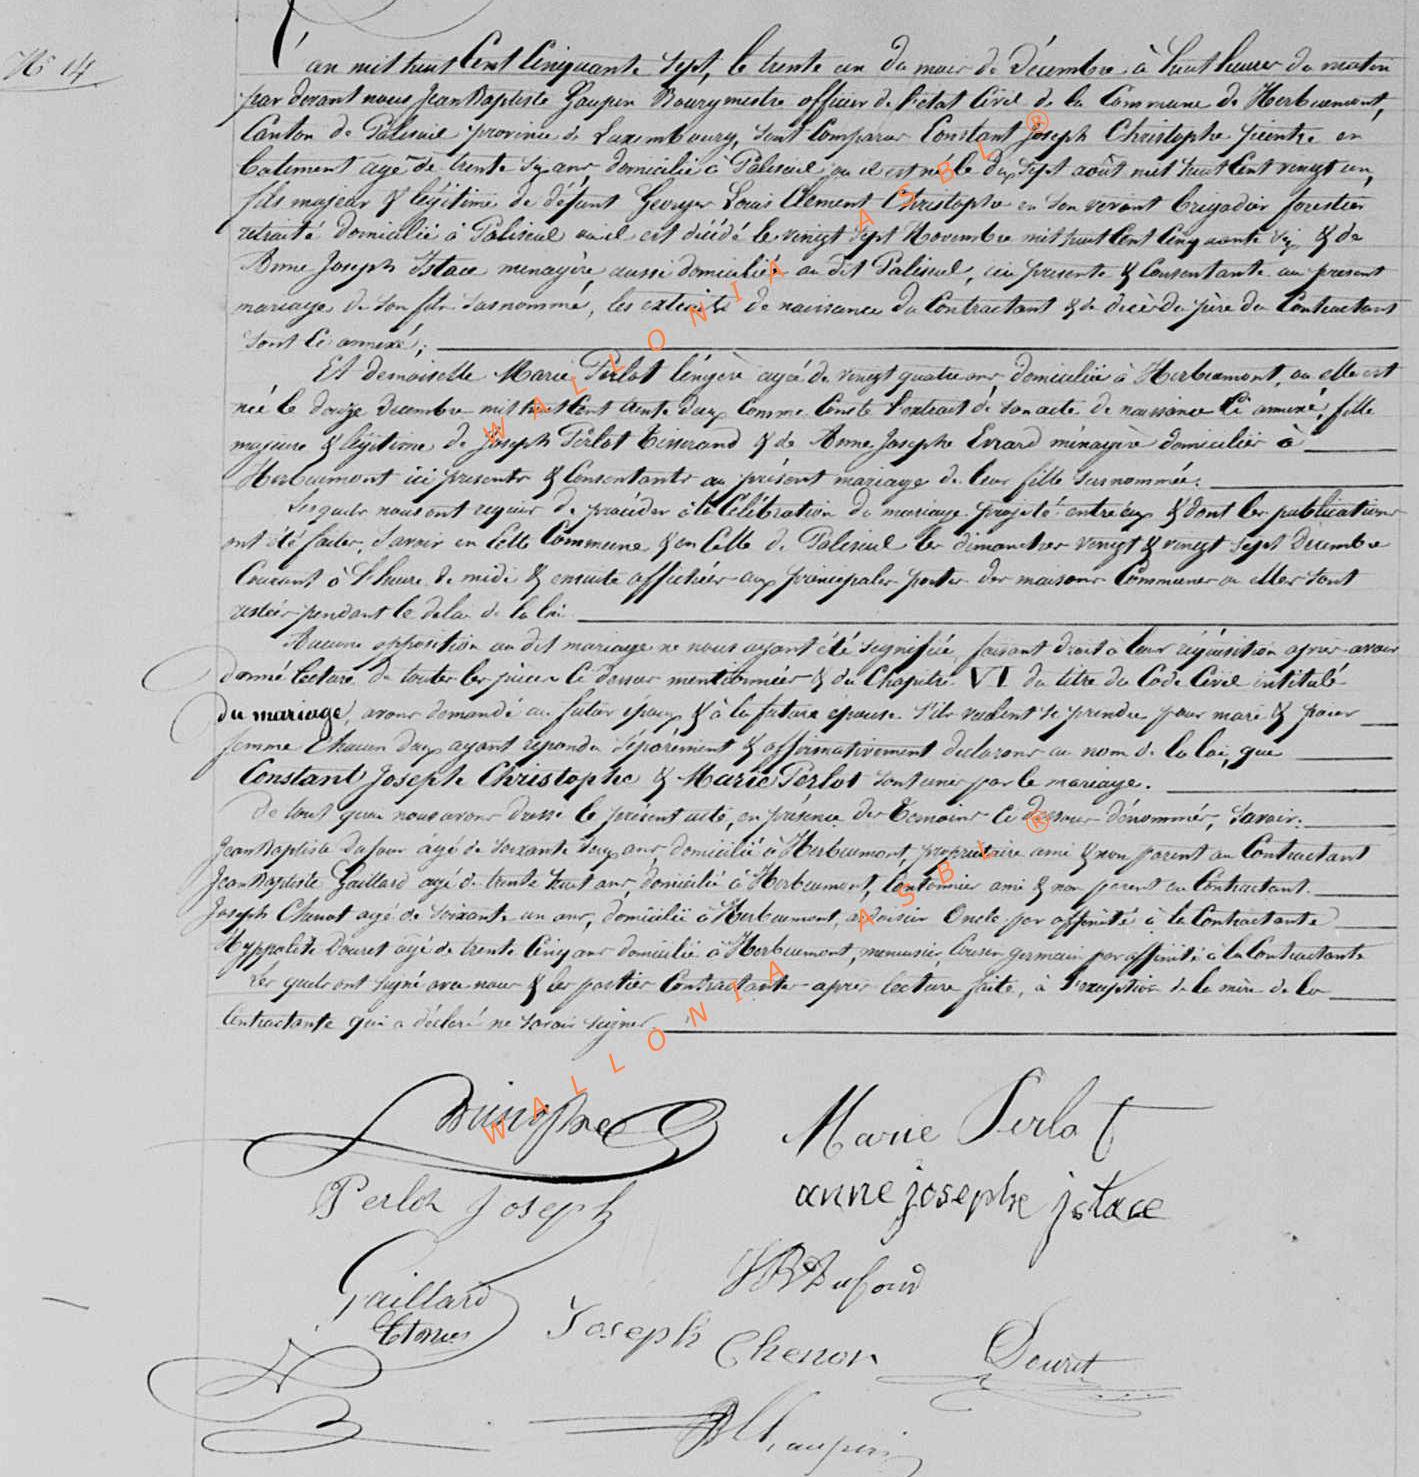 N° 14
L'an mil huit Cent Cinquante Sept, le trente un du mois de Décembre à huit heures du matin
par devant nous Jean Baptiste Gaupin Bourgmestre officier de l'état Civil de la Commune de Herbeumont,
Canton de Paliseul province de Luxembourg, sont Comparus Constant Joseph Christophe peintre en
batiment agé de trente six ans, domicilié à Paliseul ou il est né le dix sept août mil huit Cent vingt un,
fils majeur & légitime de défunt Georges Louis Clément Christophe en son vivant brigadier forestier
retraité domicilié à Paliseul où il est décédé le vingt sept Novembre mil huit Cent Cinquante six & de
Anne Joseph Istace menagère, aussi domiciliée au dit Paliseul, ici présente & Consentante au présent
mariage de son fils susnommé, les extraits de naissance du Contractant & de décès du père du Contractant
sont Ci annexé;
Et demoiselle Marie Perlot lingère agée de vingt quatre ans, domiciliée à Herbeumont, ou elle est
née le douze décembre mil huit Cent trente deux Comme Conste l'extrait de son acte de naissance Ci annexé, fille
majeure & légitime de Joseph Perlot tisserand & de Anne Josephe Evrard ménagère domiciliés à
Herbeumont ici présents & Consentants au présent mariage de leur fille susnommée.
Lesquels nous ont requis de procéder à la Célébration du mariage projeté entre eux & dont les publications
ont été faites, Savoir en Cette Commune & en Celle de Paliseul les dimanches vingt & vingt sept Décembre
Courant à l'heure de midi & ensuite affichées aux principales portes des maisons Communes ou elles sont
restées pendant le délai de la loi
Aucune opposition au dit mariage ne nous ayant été signifiée, faisant droit à leur réquisition après avoir
donné lecture de toutes les pièces Ci dessus mentionnées & du Chapitre VI du titre du Code Civil intitulé
du mariage, avons demandé au futur époux & à la future épouse s'ils veulent se prendre pour mari & pour
femme Chacun d'eux ayant répondu séparément & affirmativement declarons au nom de la loi, que
Constant Joseph Christophe & Marie Perlot sont unis par le mariage.
De tout quoi nous avons dressé le présent acte, en présence des témoins Ci dessous dénommés, Savoir.
Jean Baptiste Dufour âgé de soixante deux ans, domicilié à Herbeumont, propriétaire ami & non parent au Contractant
Jean Baptiste Gaillard agé de trente huit ans, domicilié à Herbeumont, Cantonnier ami & non parent au Contractant.
Joseph Chenot agé de soixante un ans, domicilié à Herbeumont, ardoisier Oncle par affinité à la Contractante
Hyppolite Douret âgé de trente Cinq ans domicilié à Herbeumont, menuisier Cousin germain par affinité à la Contractante
Les quels ont signé avec nous & les parties Contractantes après lecture faite, à l'exception de la mère de la
Contractante qui a déclaré ne savoir signer
Marie Perlot
Perlot Joseph
anne josephe jstace
JB Dufour
Gaillard
Joseph Chenot
Douret
Gaupin
WALLONIA ASBL ®
WALLONIA ASBL ®